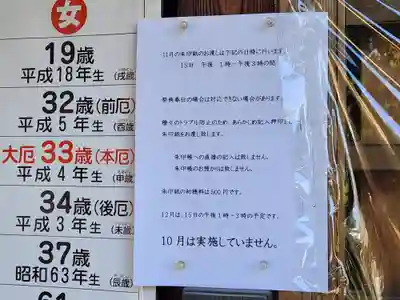 女
19歳
平成18年生(戌歳)
32歳(前厄)
平成5年生(酉歳)
大厄33歳(本厄)
平成4年生(申歳)
34歳(後厄)
平成3年生(未歳)
37歳
昭和63年生(辰歳)
11月の朱印紙のお渡しは下記の日時に行います。
15日 午後1時~午後3時の間
祭務奉仕の場合は対応できない場合があります。
種々のトラブル防止のため、あらかじめ記入押印した
朱印紙をお渡し致します。
朱印帳への直接の記入は致しません。
朱印帳のお預かりは致しません。
朱印紙の初穂料は500円です。
12月は、15日の午後1時~3時の予定です。
10月は実施していません。